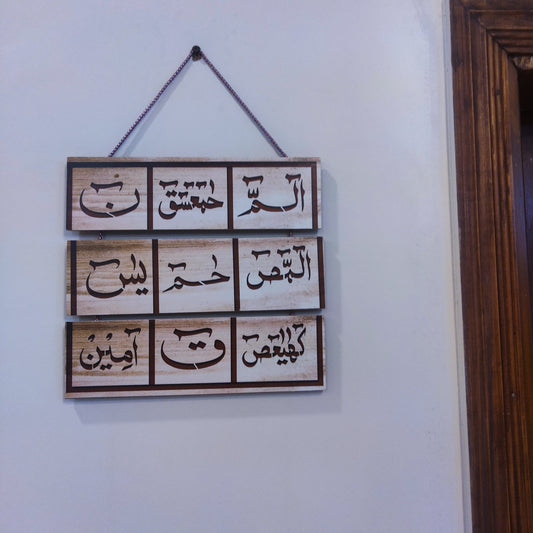 الٓمّٓ حٰمٓعٓسٓقٓ نٓ
الٓمّٓصٓ حٰمٓ يٰسٓ
كٓهٰيٰعٓصٓ قٓ آمِيْنْ